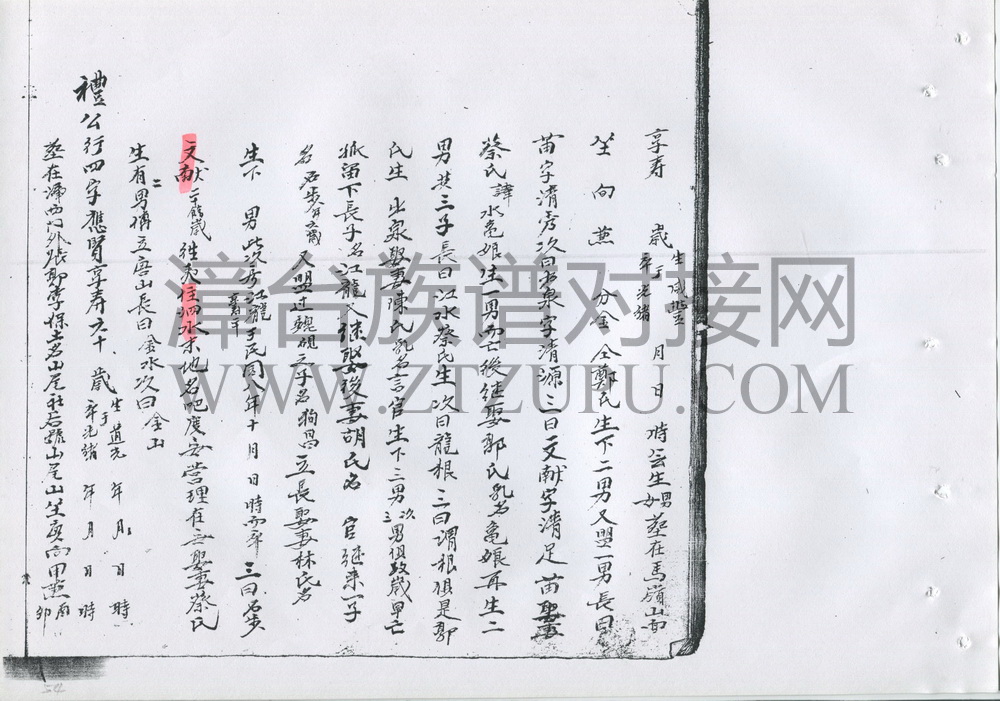 享寿 歲 生于咸豐 卒光緒 月 日 時公生男女葬在馬嶺山
坐 向 兼 分金 全鄭氏生下二男又盟一男長曰
苗字清秀次曰水泉字清源三曰文献字清足 苗娶妻
蔡氏諱水亀娘生一男而亡後继娶郭氏乳名亀娘再生二
男共三子長曰江水蔡氏生次曰龍根三曰謂根俱是郭
氏生 出泉娶妻陳氏乳名言官生下三男次三男俱数歲早亡
留下長子名江龍 继娶後妻胡氏名 官继来一子
名 又盟过魏硯之子名狗昌立長娶妻林氏名
生下 男 次房江龍 于民国八年十月 日時而卒 三曰
文献 二十餘歲往夷往泗水末地名吧度 安营理在 娶妻蔡氏
生有二男 立唐山長曰金水次曰金山
禮公行四字應賢享寿六十 歲 生于道光 年 月 日 時 卒光緒 年 月 日 時
葬在 西门外 保土名山尾社后 山坐寅向甲兼
漳台族谱对接网
WWW.ZTZUPU.COM
54